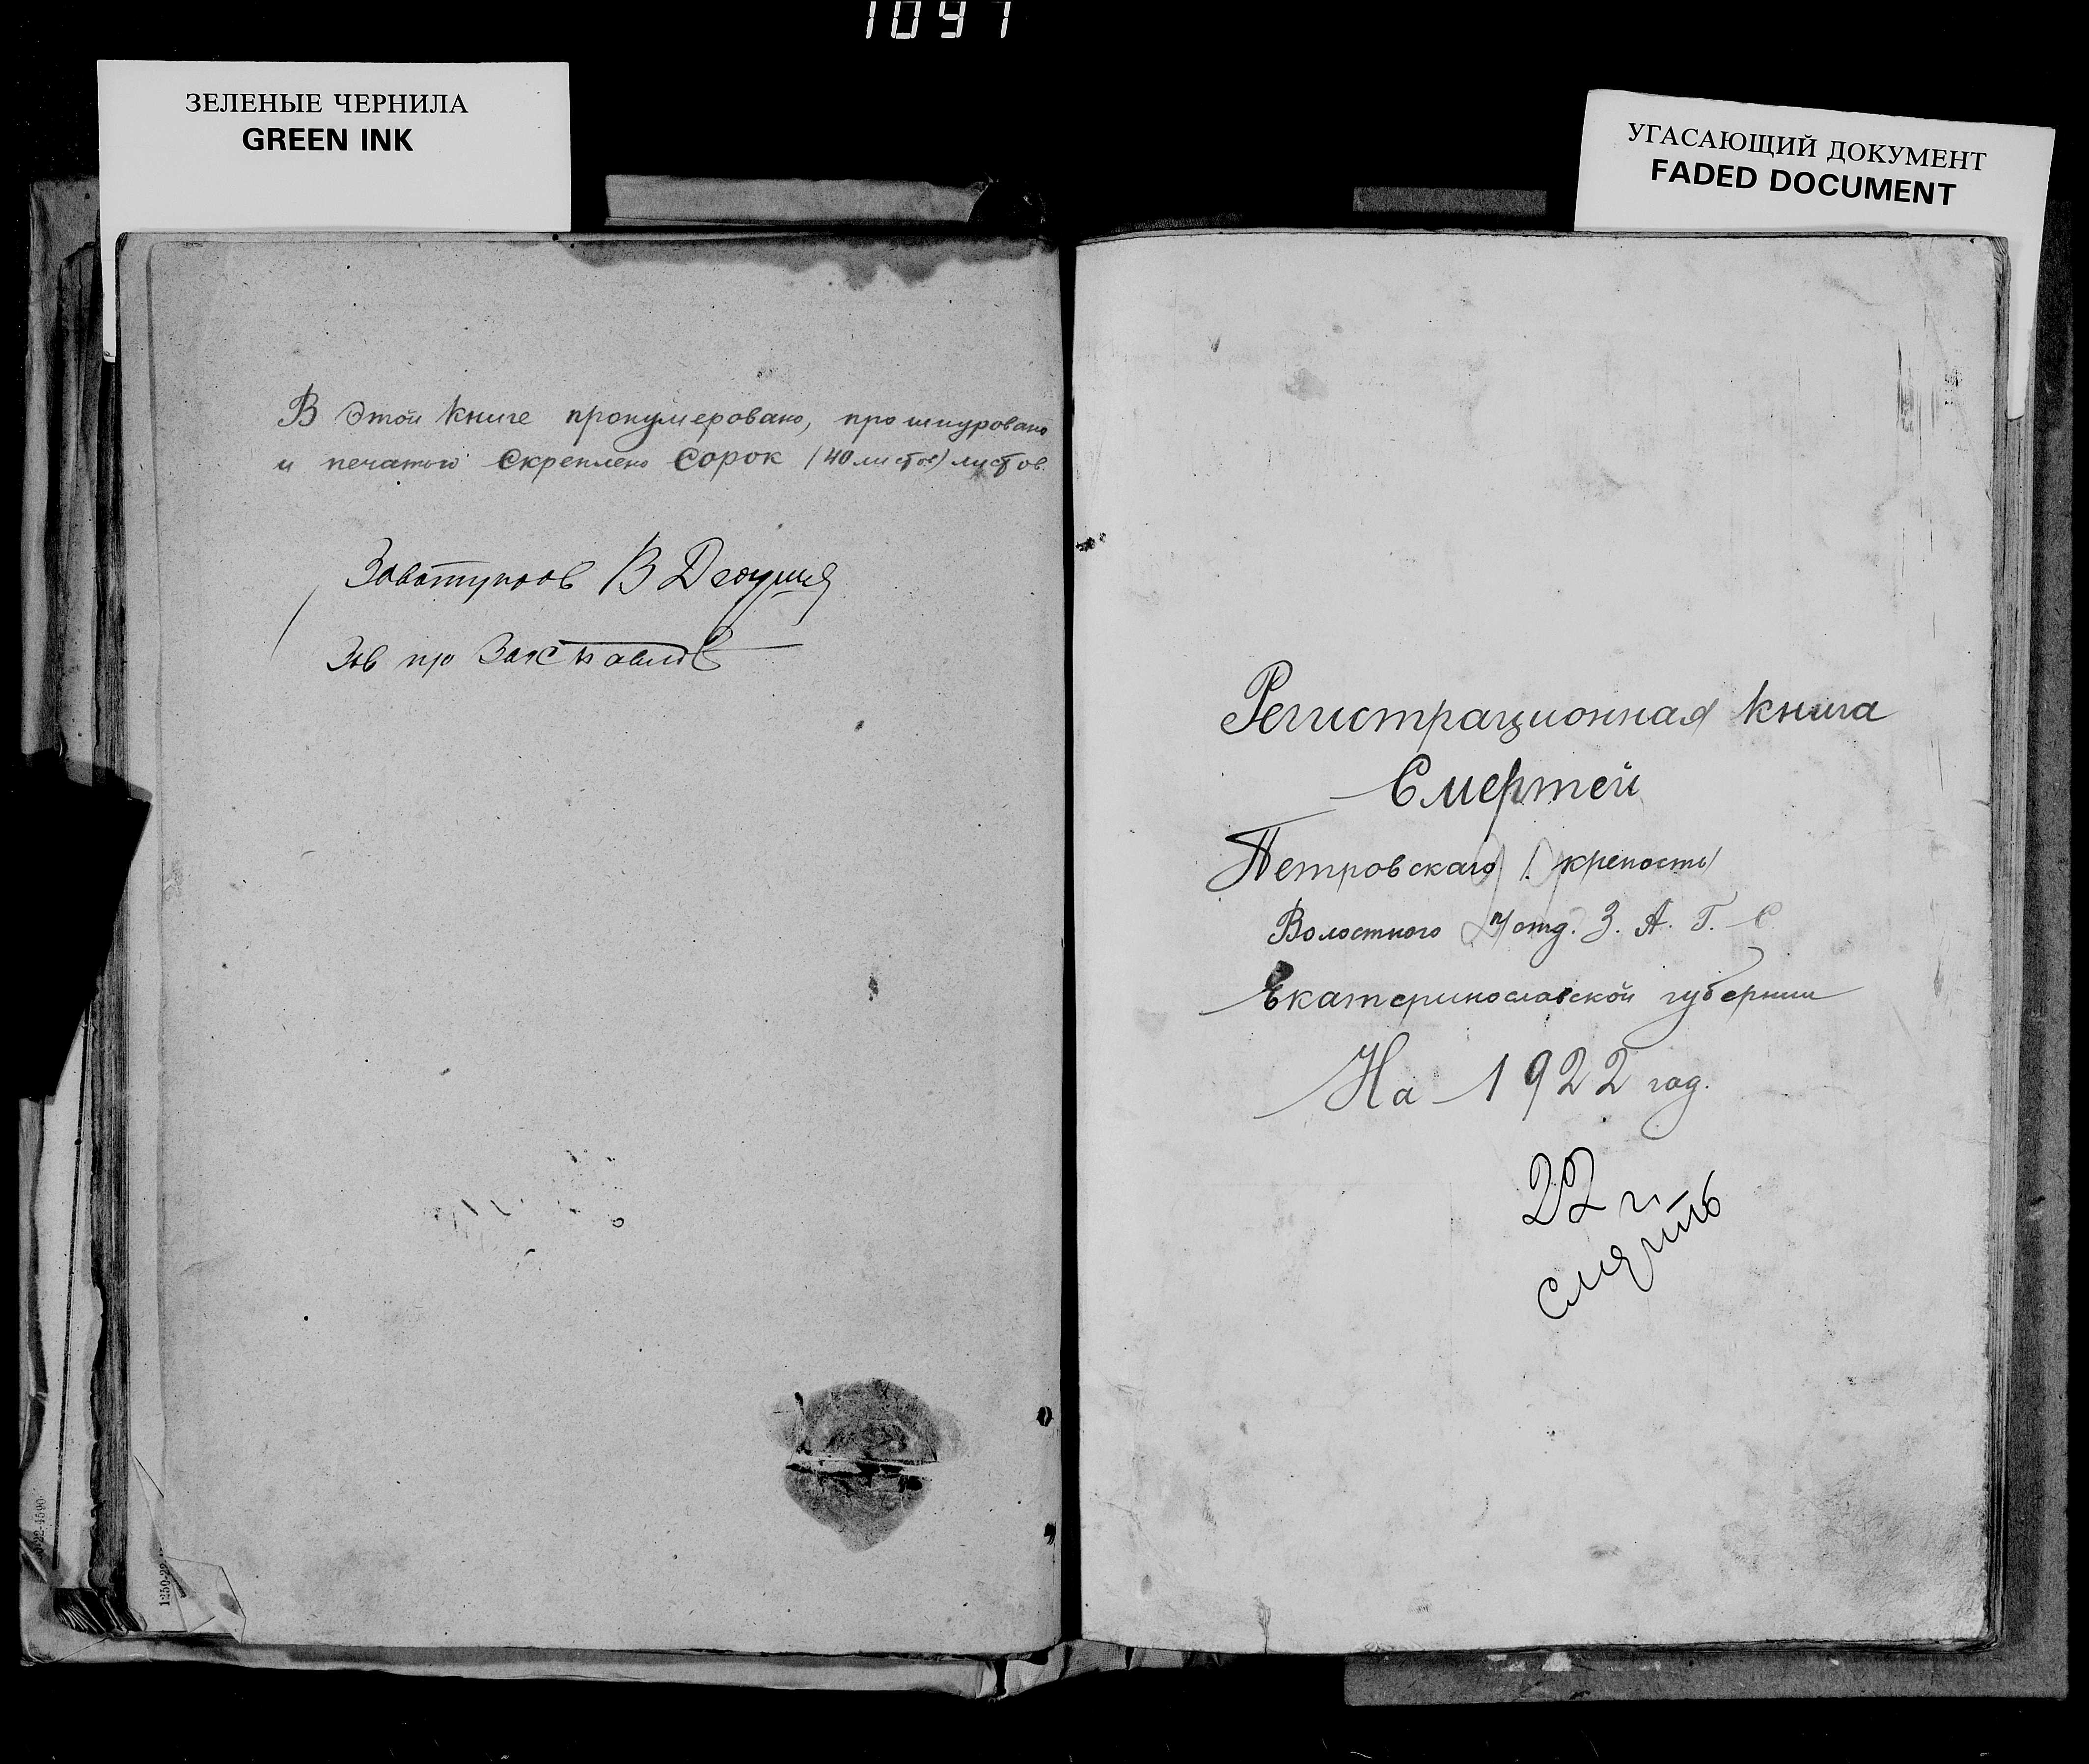 1097
ЗЕЛЕНЫЕ ЧЕРНИЛА
GREEN INK
УГАСАЮЩИЙ ДОКУМЕНТ
FADED DOCUMENT
В этой книге пронумеровано, прошнуровано
и печатью скреплено сорок (40 листов) листов.
В
Зав
Регистрационная книга
Смертей
Петровскаго /крепость/
Волостного п/отд. З. А. Г. С
Екатеринославской губернии
На 1922 год.
22 г.
смерть